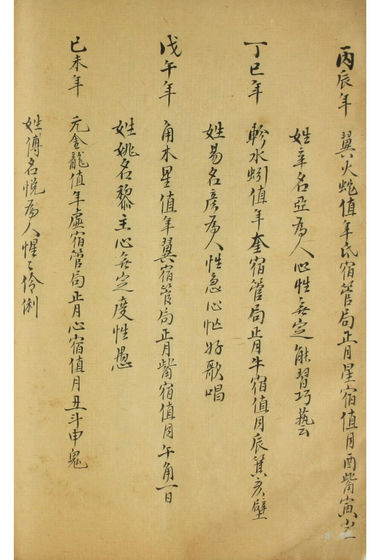 丙辰年 翼火蛇值年氐宿管局正月星宿值月酉觜寅室
姓辛名亞為人心性無定能習巧藝
丁巳年 軫水蚓值年奎宿管局正月牛宿值月辰箕亥壁
姓易名彥為人性急心忙好歌唱
戊午年 角木星值年翼宿管局正月觜宿值月午角一日
姓姚名黎主心無定度性愚
己未年 亢金龍值年虛宿管局正月心宿值月丑斗申鬼
姓傅名悅為人惺〻伶俐